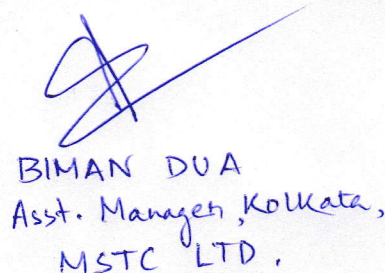 BIMAN DUA
Asst. Manager, Kolkata,
MSTC LTD.